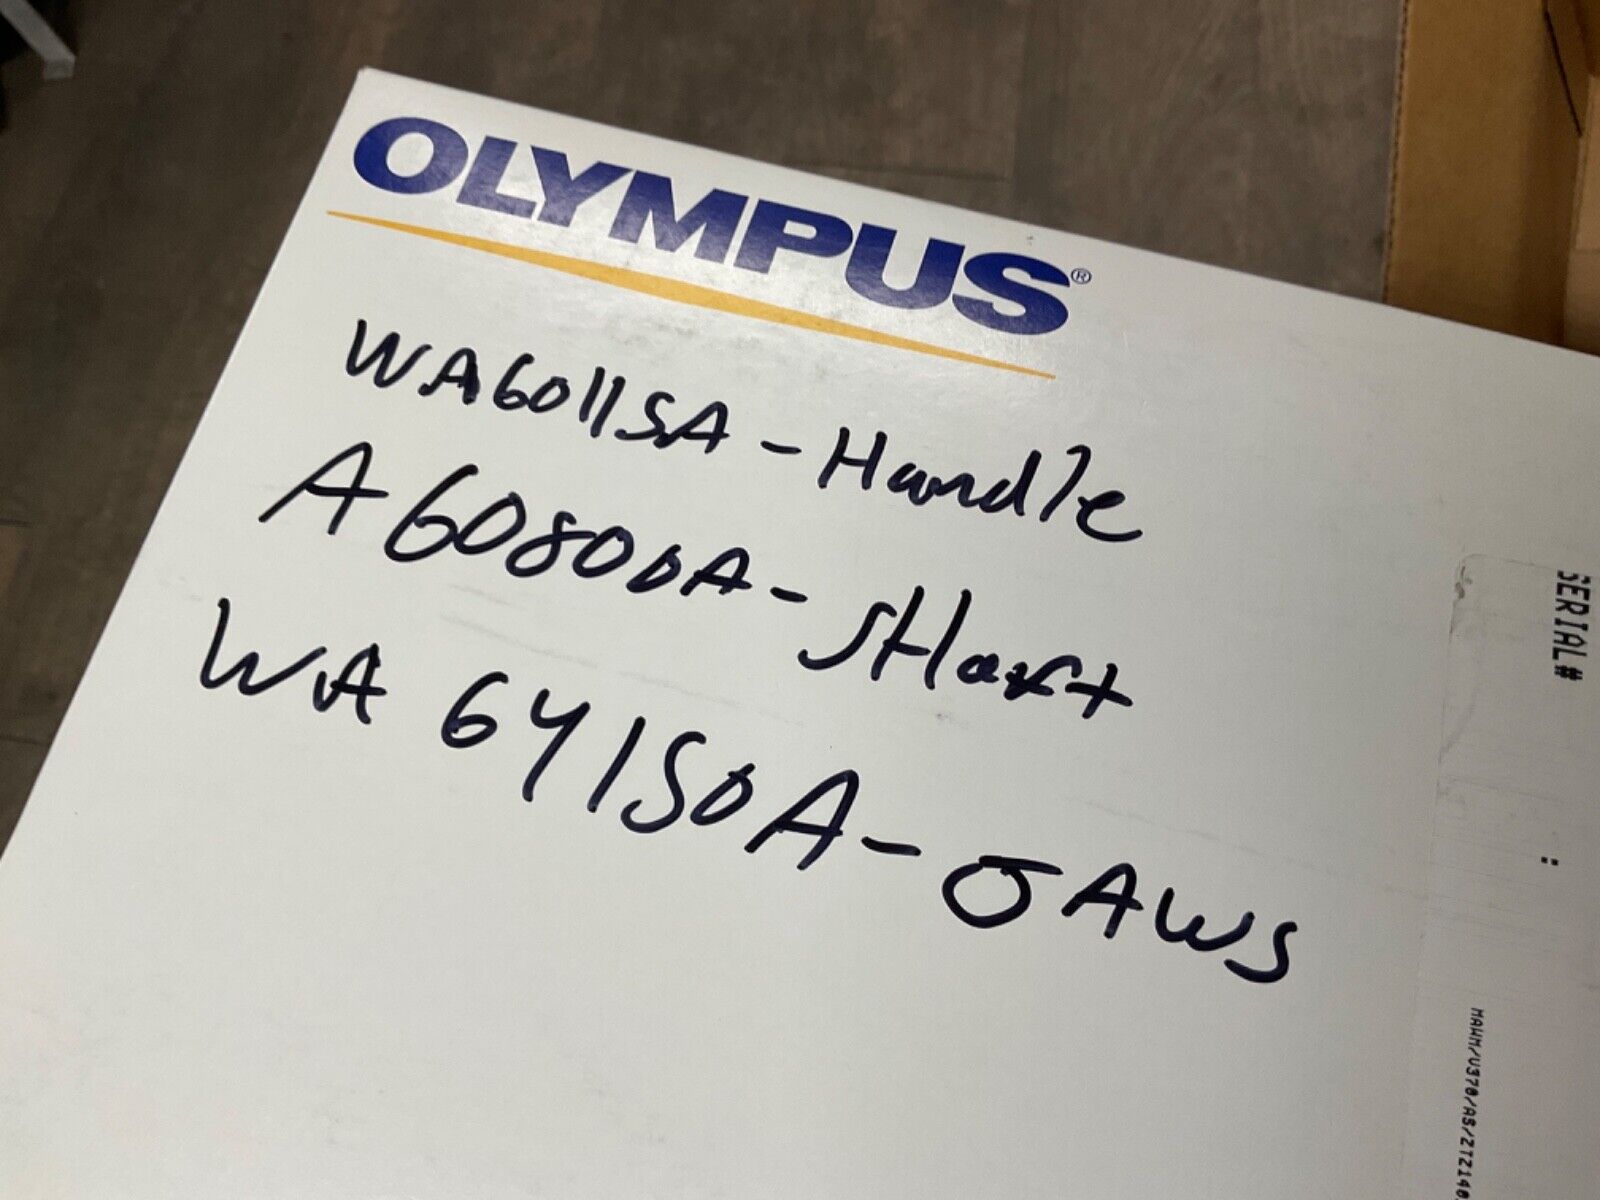 OLYMPUS®
WA60115A - Handle
A60800A - sHaft
WA 64150A - JAWS
SERIAL#
:
MAWM/U370/AS/ZTZ140